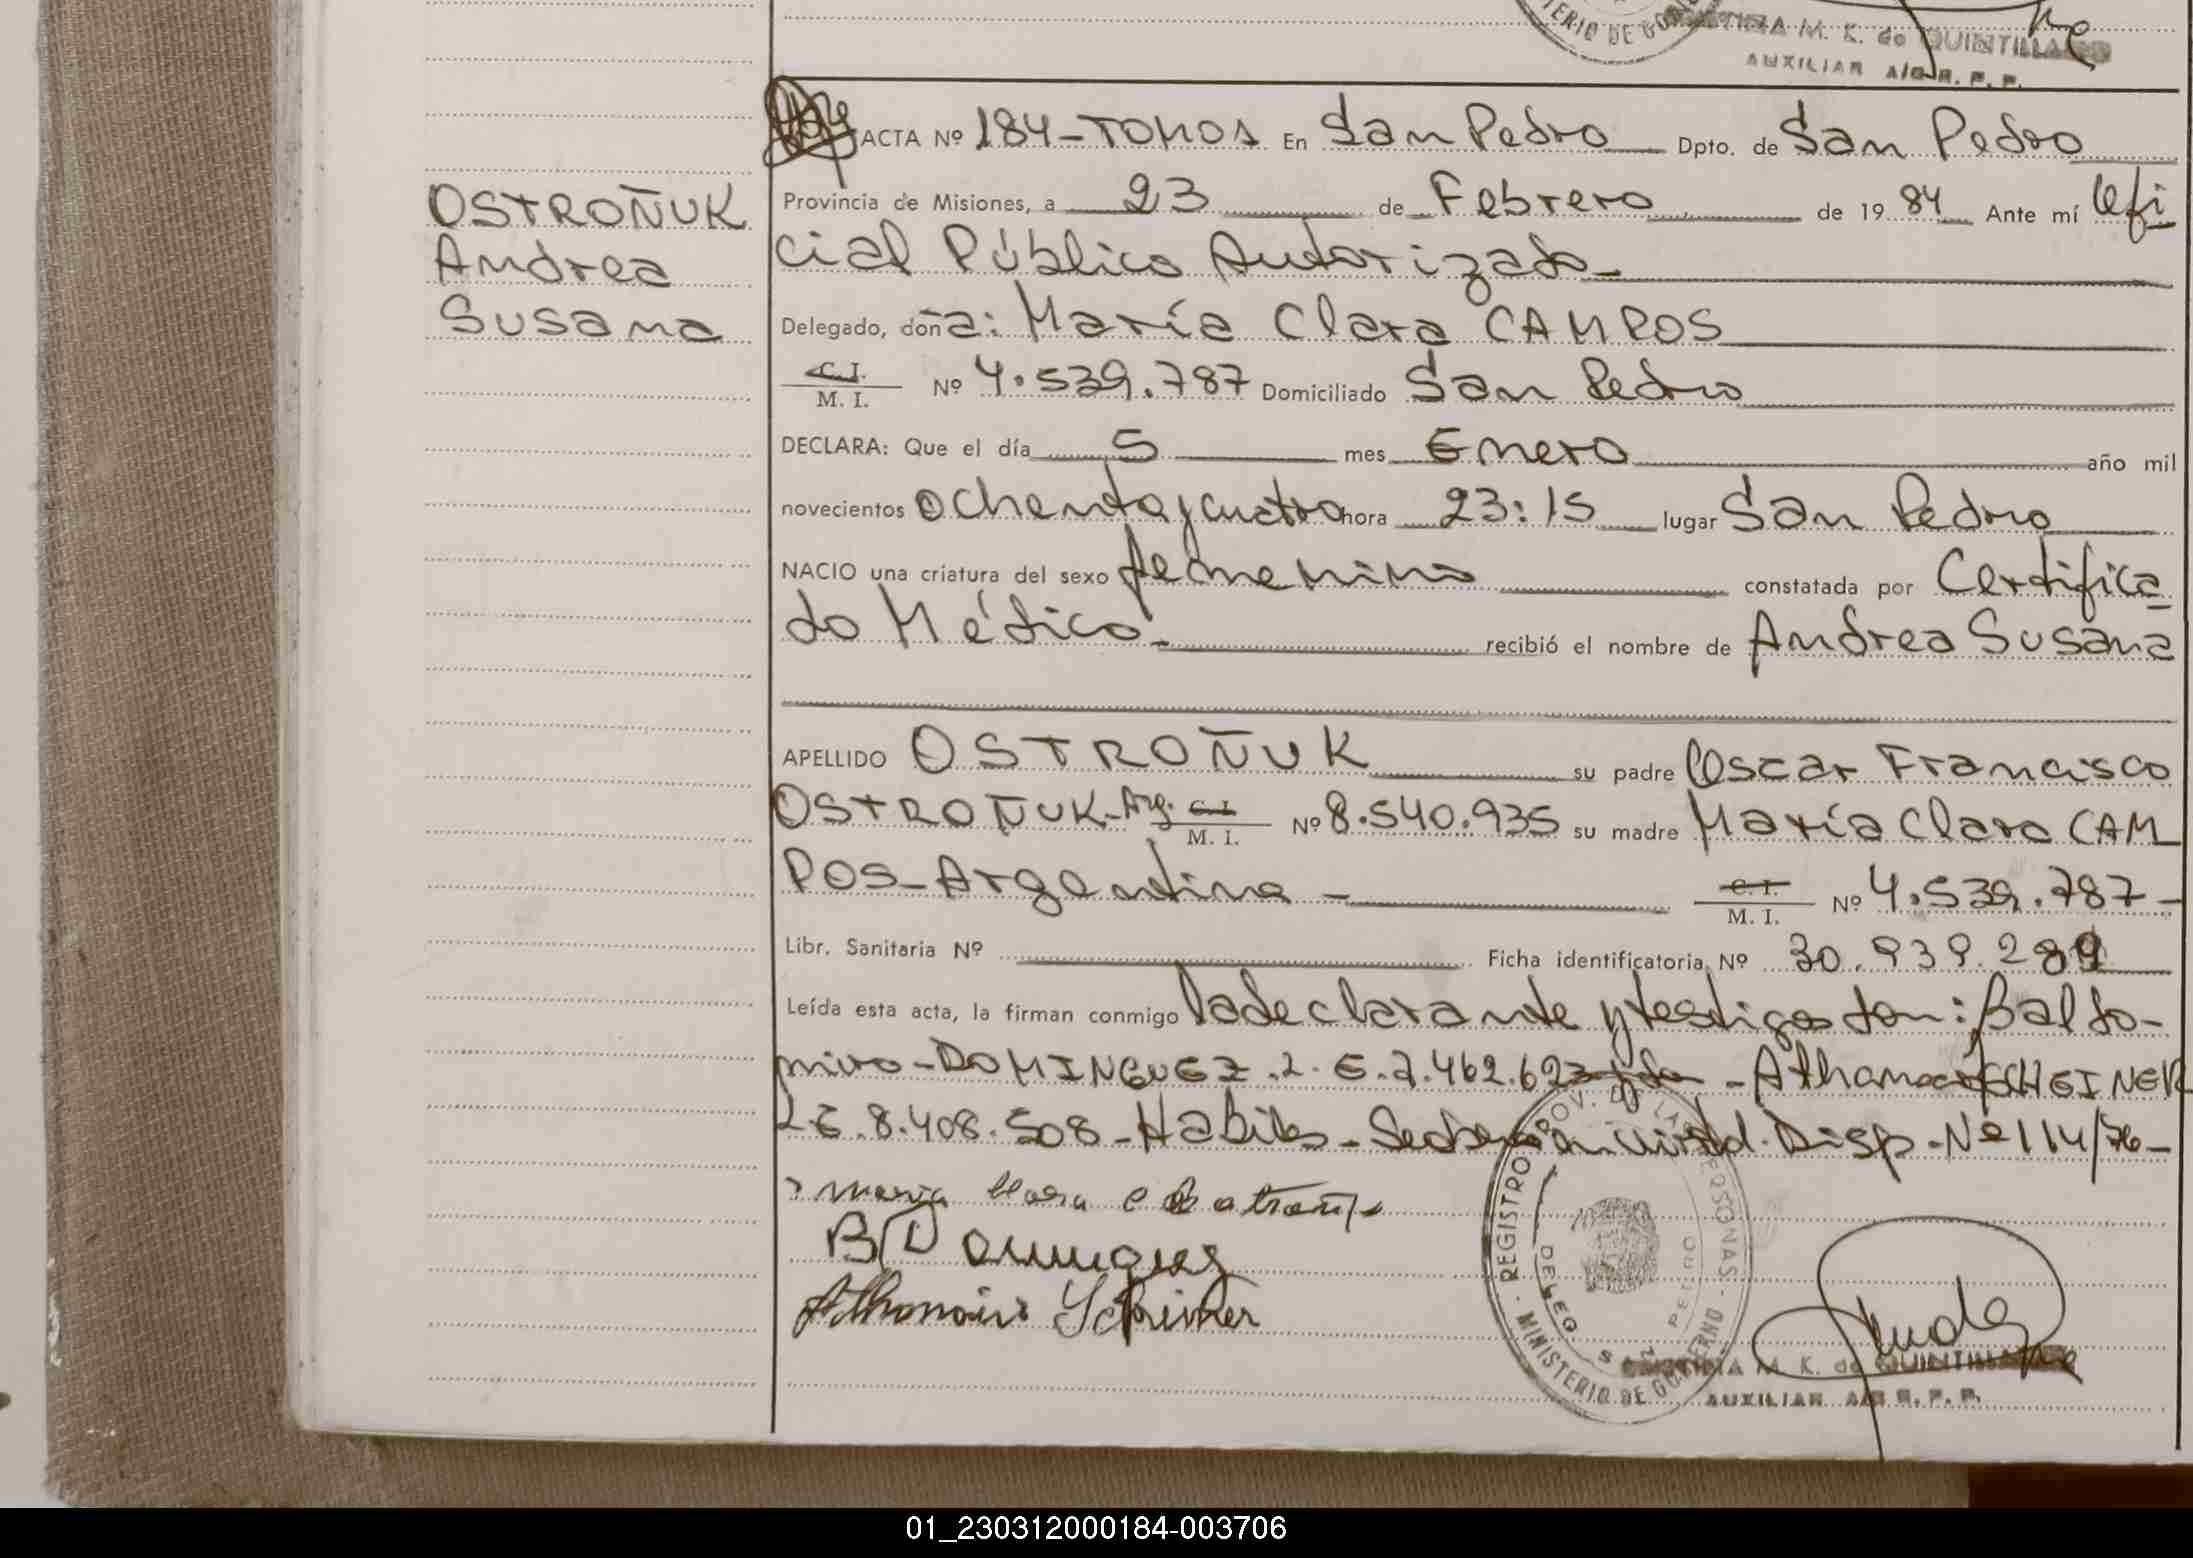 TERIO DE GOB
M. K. de QUINTILLANO
AUXILIAR A/C R. P. P.
ACTA Nº 184-TOMO 1 En San Pedro Dpto. de San Pedro
OSTROÑUK
Andrea
Susana
Provincia de Misiones, a 23 de Febrero de 19 84 Ante mí Ofi
cial Público Autorizado-
Delegado, doña: María Clara CAMPOS
C. I. / M. I. Nº 4.539.787 Domiciliado San Pedro
DECLARA: Que el día 5 mes Enero año mil
novecientos ochenta y cuatro hora 23:15 lugar San Pedro
NACIO una criatura del sexo femenino constatada por Certifica
do Médico- recibió el nombre de Andrea Susana
APELLIDO OSTROÑUK su padre Oscar Francisco
OSTROÑUK-Arg. C. I. / M. I. Nº 8.540.935 su madre María Clara CAM
POS-Argentina- C. I. / M. I. Nº 4.539.787-
Libr. Sanitaria Nº Ficha identificatoria Nº 30.939.289
Leída esta acta, la firman conmigo la declarante y testigos don: Baldo-
miro-DOMINGUEZ.L.E.7.462.623 -Athanacio SCHEINER
LE.8.408.508-Habiles- Disp-Nº114/76-
B Dominguez
REGISTRO PROV. DE LAS PERSONAS · MINISTERIO DE GOBIERNO
DELEG. SAN PEDRO
M. K. de QUINTILLANO
AUXILIAR A/C R. P. P.
01_230312000184-003706